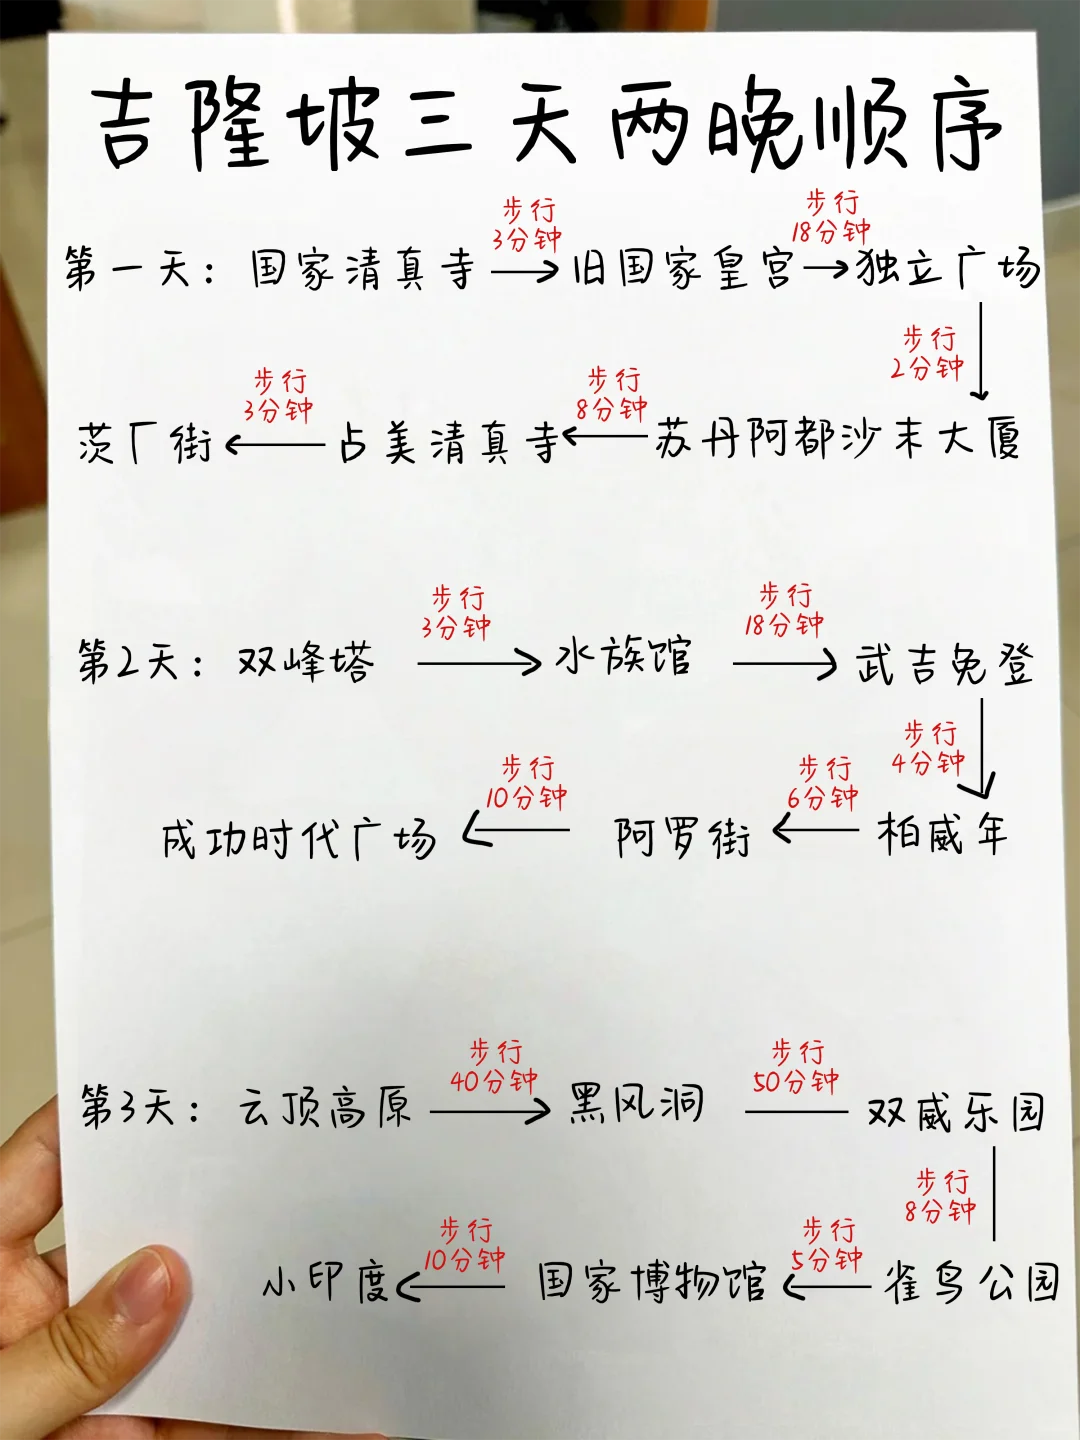 吉隆坡三天两晚顺序
步行 步行
3分钟 18分钟
第一天：国家清真寺 → 旧国家皇宫 → 独立广场
步行
2分钟
步行 步行
3分钟 8分钟
茨厂街 ← 占美清真寺 ← 苏丹阿都沙末大厦
步行 步行
3分钟 18分钟
第2天：双峰塔 → 水族馆 → 武吉免登
步行
4分钟
步行 步行
10分钟 6分钟
成功时代广场 ← 阿罗街 ← 柏威年
步行 步行
40分钟 50分钟
第3天：云顶高原 → 黑风洞 — 双威乐园
步行
8分钟
步行 步行
10分钟 5分钟
小印度 ← 国家博物馆 ← 雀鸟公园